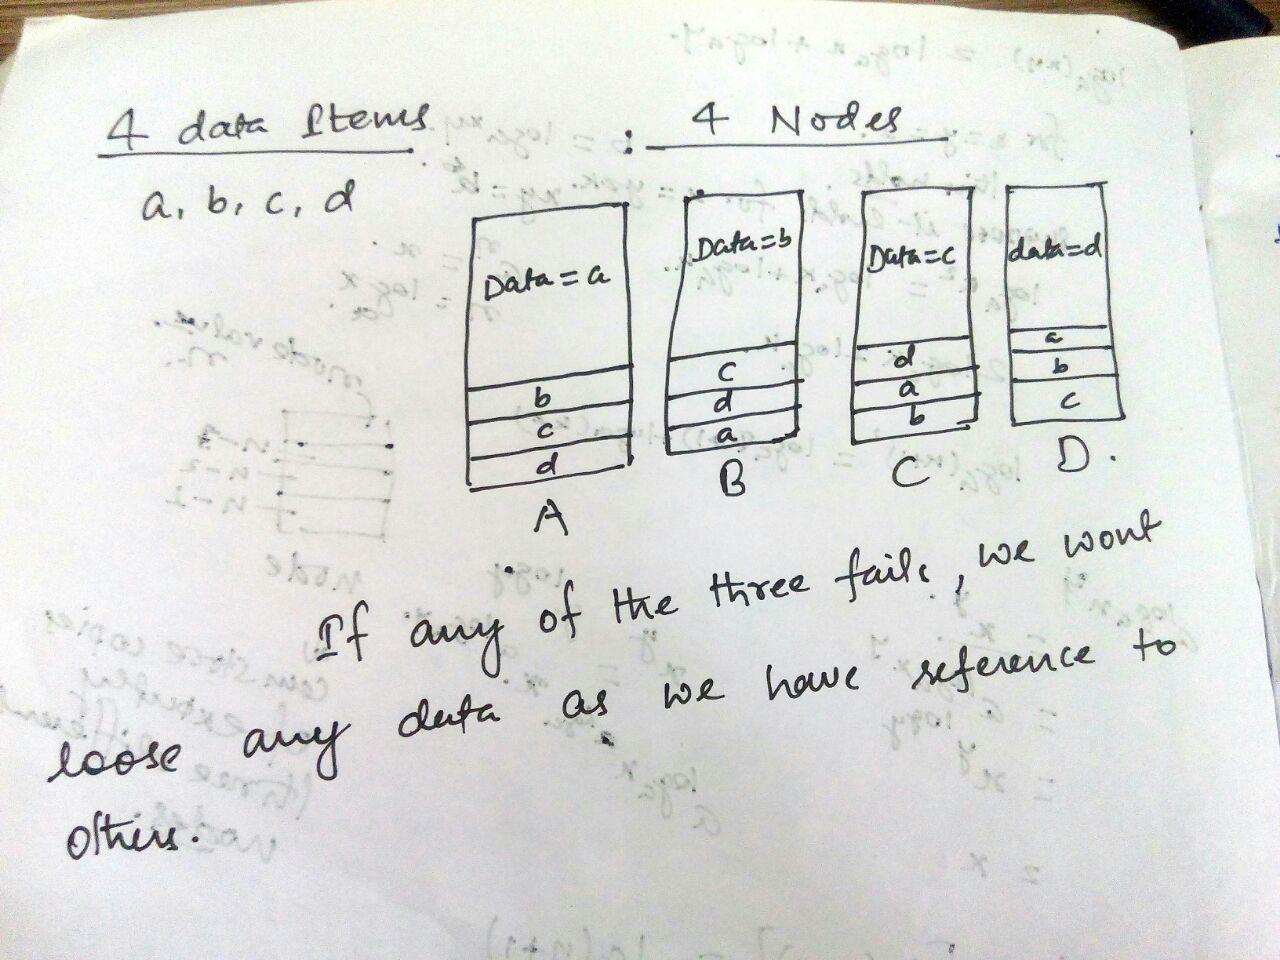 4 data Items : 4 Nodes
a, b, c, d
Data = a
b
c
d
A
Data = b
c
d
a
B
Data = c
d
a
b
C
data = d
a
b
c
D.
If any of the three fails, we wont
loose any data as we have reference to
others.